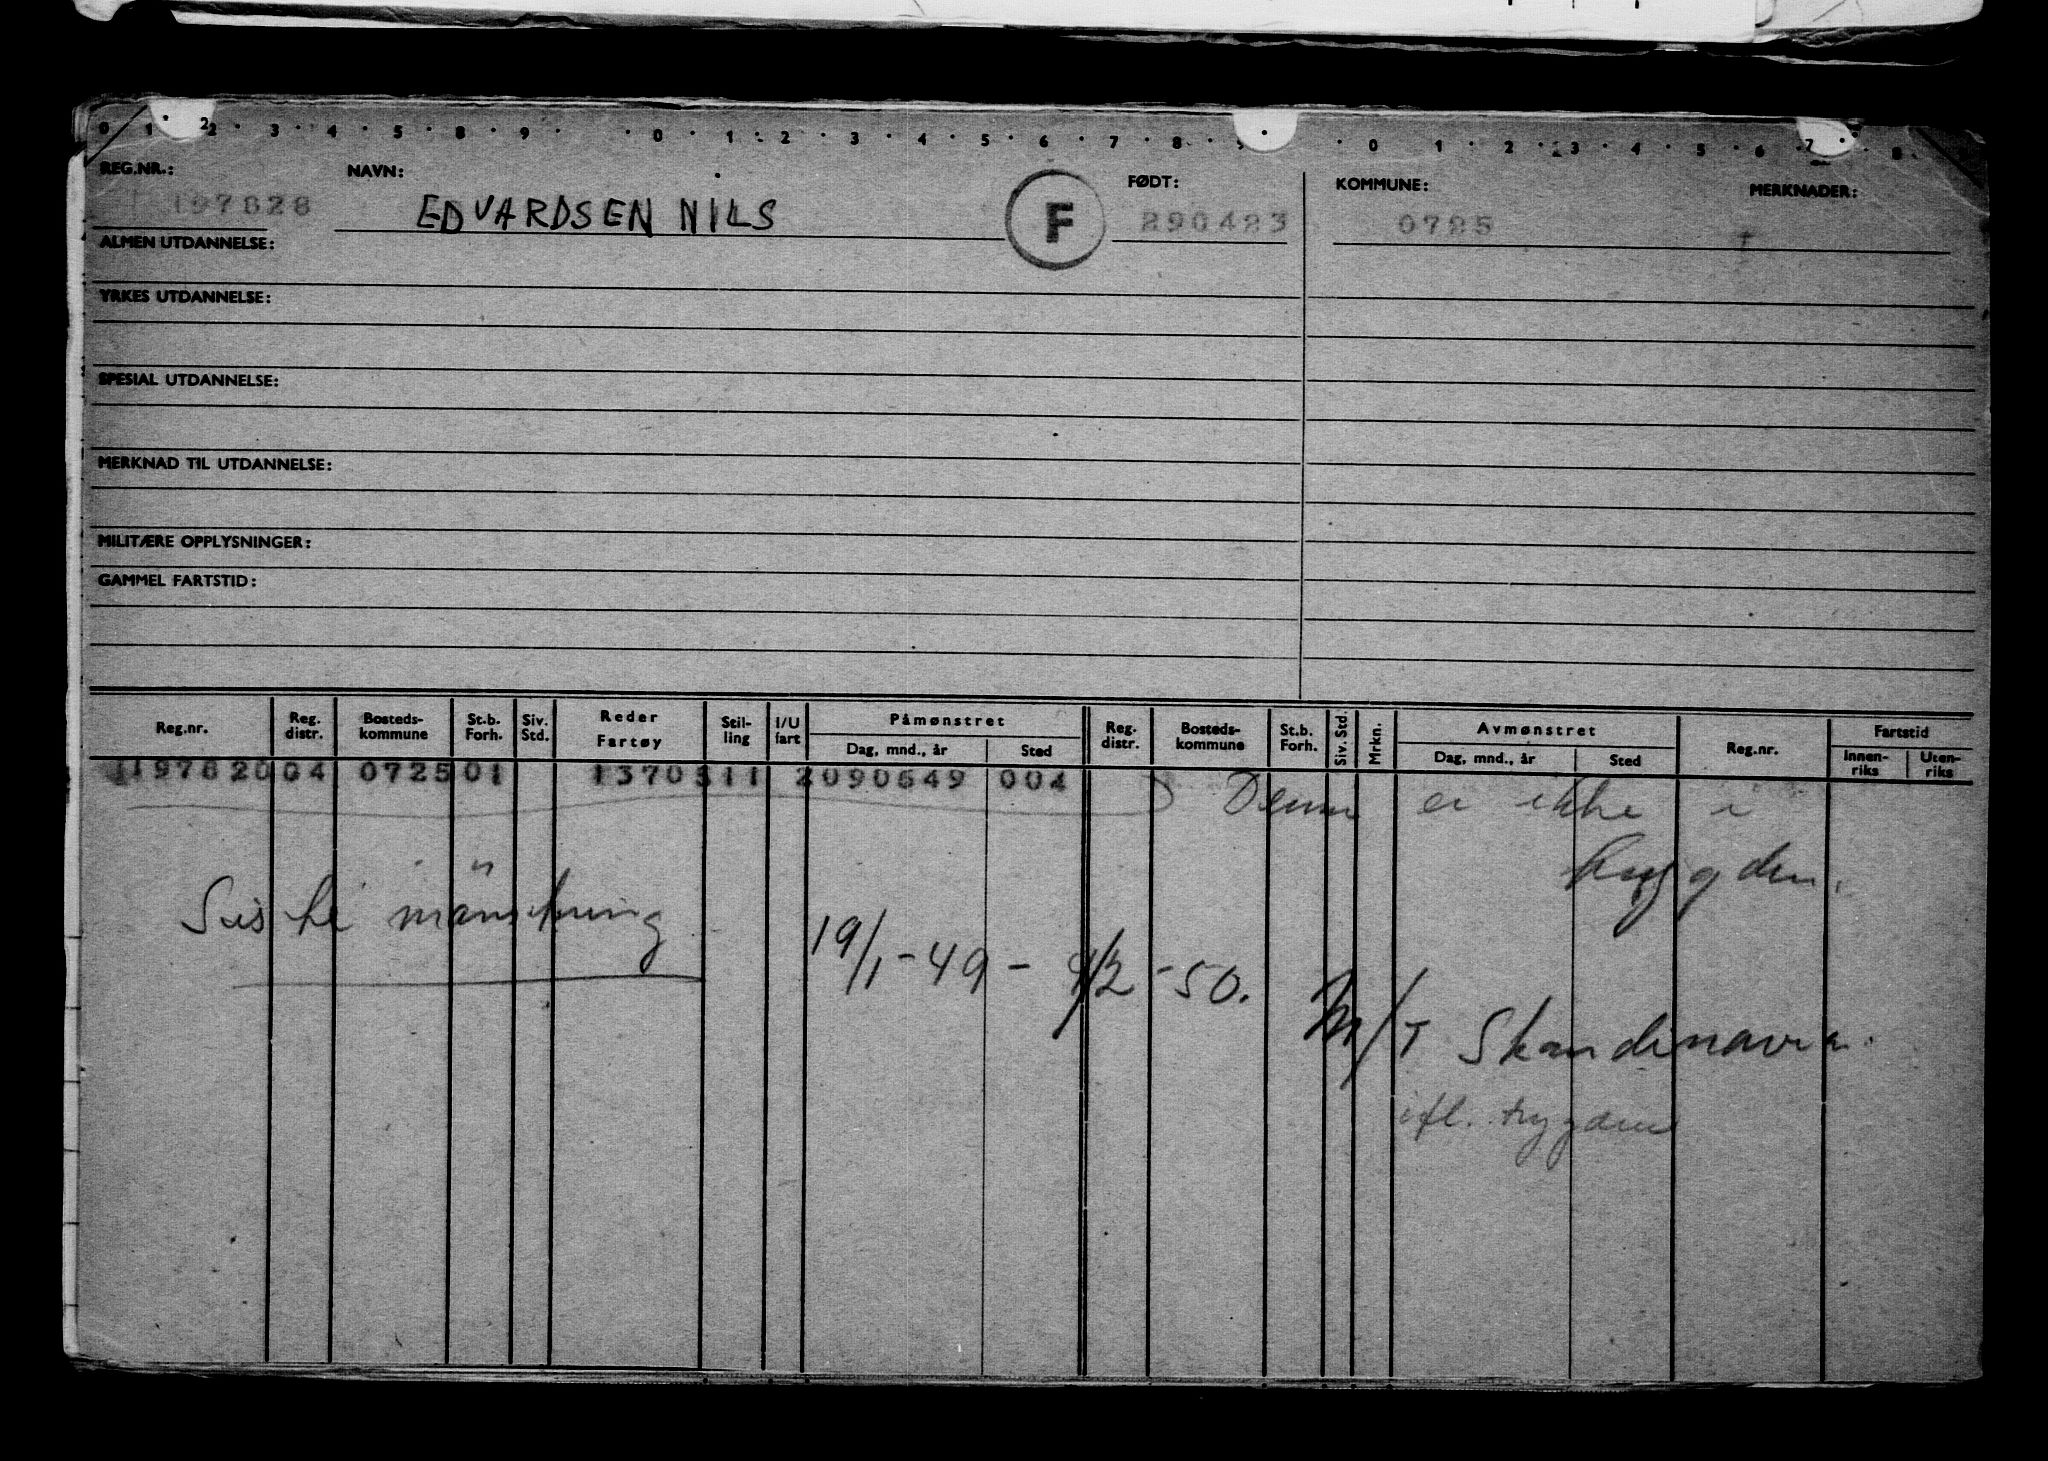 0 1 2 3 4 5 8 9 0 1 2 3 4 5 6 7 8 9 0 1 2 3 4 5 6 7 8
REG.NR.: NAVN: FØDT: KOMMUNE: MERKNADER:
197828 EDVARDSEN NILS F 290423 0725
ALMEN UTDANNELSE:
YRKES UTDANNELSE:
SPESIAL UTDANNELSE:
MERKNAD TIL UTDANNELSE:
MILITÆRE OPPLYSNINGER:
GAMMEL FARTSTID:
Reg.nr. Reg. distr. Bosteds-kommune St.b. Forh. Siv. Std. Reder Fartøy Stil-ling I/U fart Påmønstret Dag, mnd., år Sted Reg. distr. Bosteds-kommune St.b. Forh. Siv. Std. Mrkn. Avmønstret Dag, mnd., år Sted Reg.nr. Fartstid Innen-riks Uten-riks
04 0725 01 1370 311 2090649 004
Denne er ikke i
trygden.
Siste mønstring
19/1-49 - 4/2-50.
M/T Skandinavia.
ifl. trygden